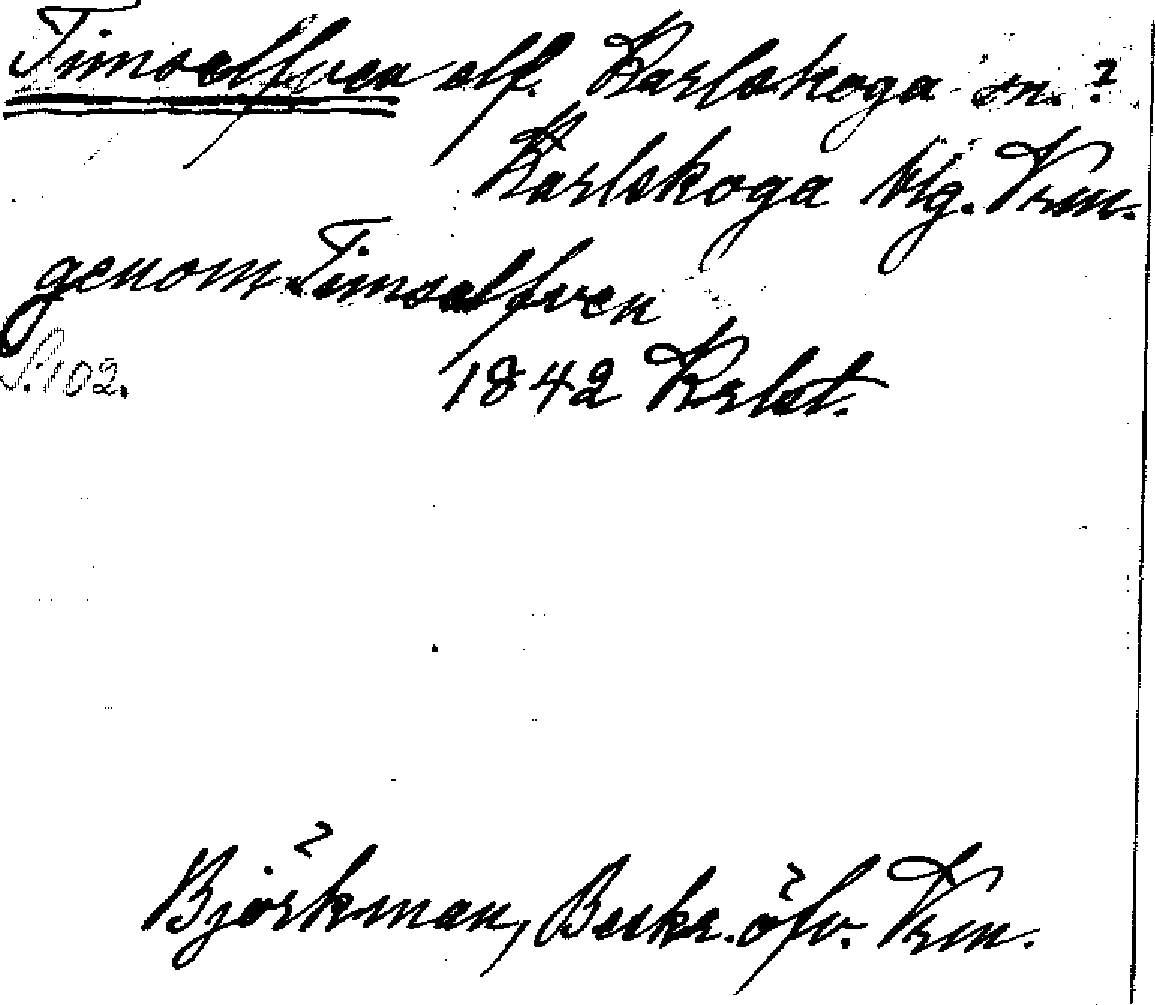 Timsælfven elf. Karlskoga sn.?
Karlskoga blg. Vrm.
genom Timsælfven
S. 102. 1842 Krlst.
Björkman, Beskr. öfv. Vrm.